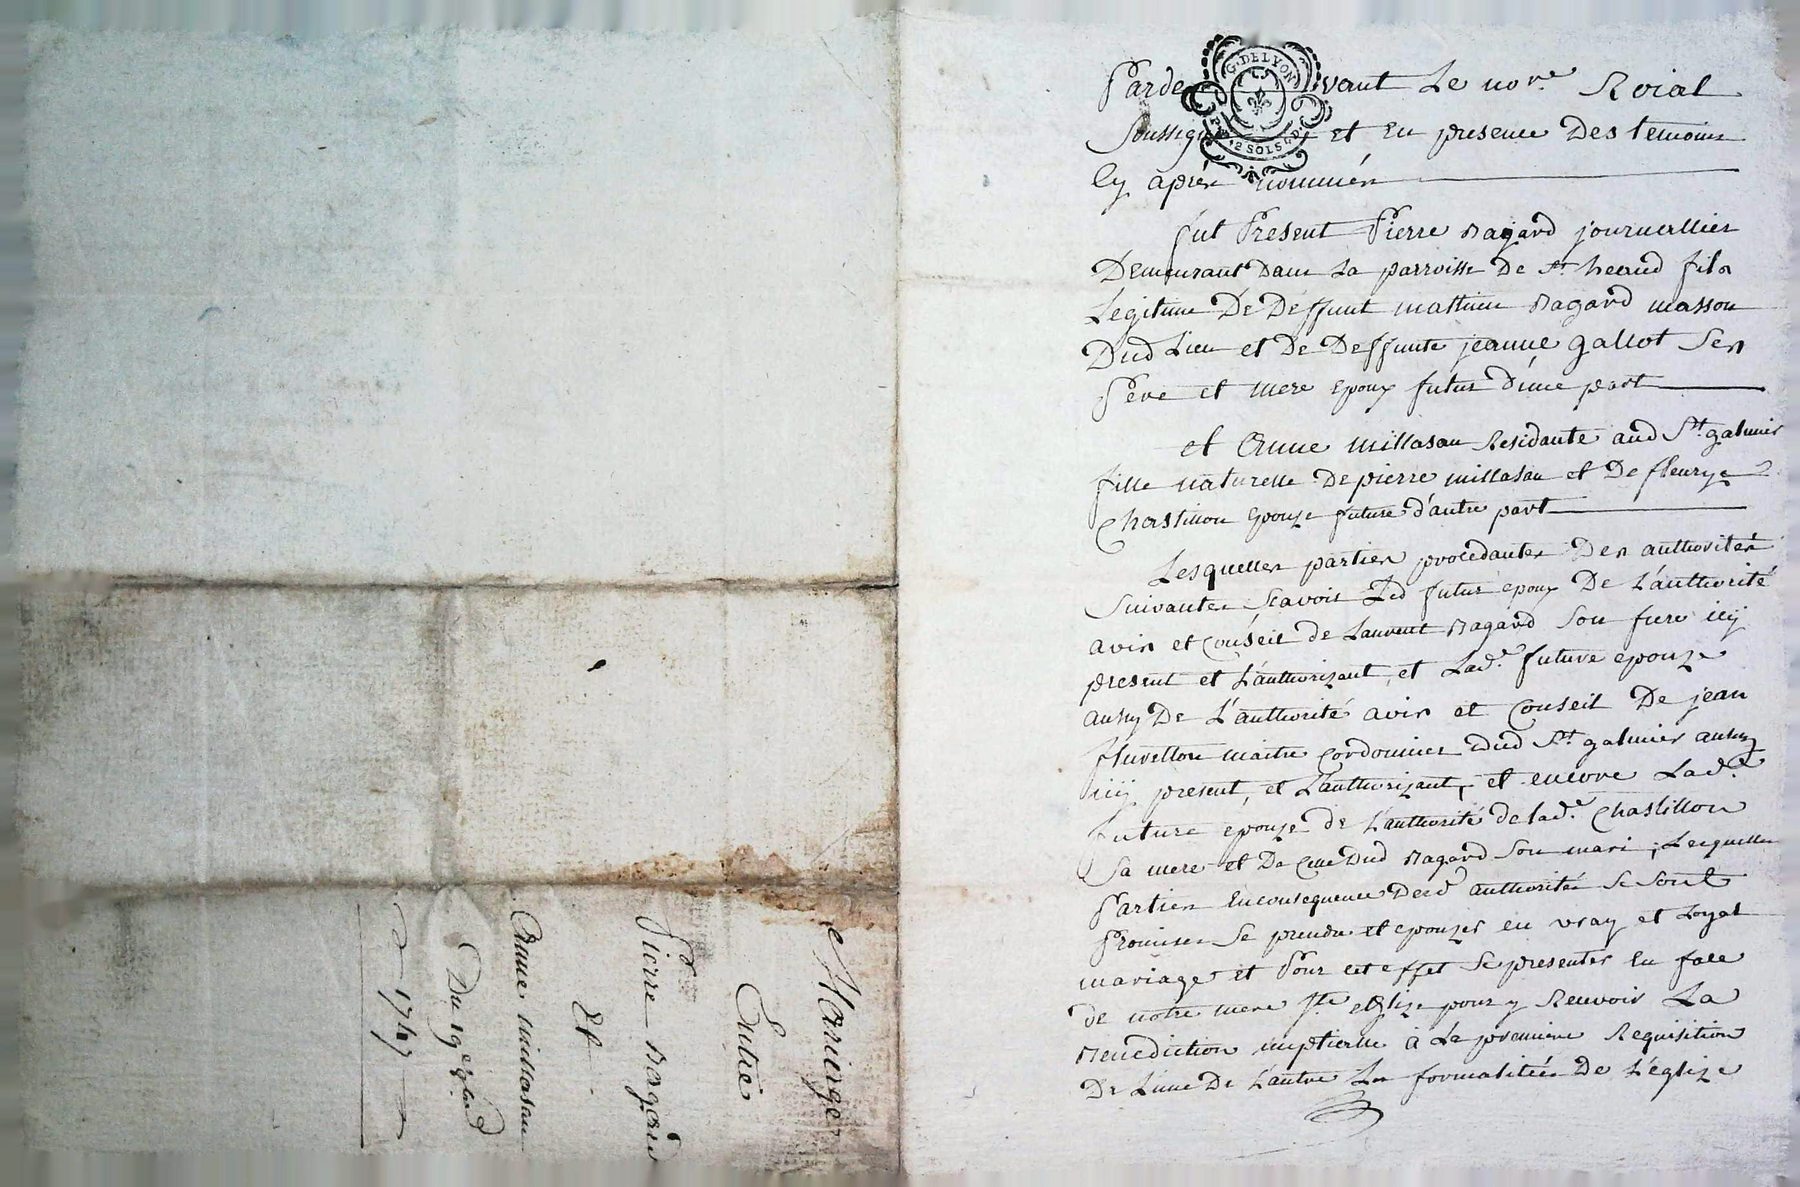 Mariage
Entre
Pierre Bagard
Et
Anne millasau
Du 19e
1747
G. DE LYON
2 SOLS 4 D
Pardevant Le nore. Roial
soussigné et En presence Des temoins
Cy aprés nommés
fut Present Pierre Bagard journallier
Demeurant Dans La parroisse De St. heand fils
Legitime De Deffunt mathieu Bagard masson
Dud Lieu et De Deffunte jeanne gallot Ses
Pere et mere epoux futur d'une part
et Anne millasau Residante aud St. galmier
fille naturelle De pierre millasau et De fleurye
Chastillon epouze future d'autre part
Lesquelles parties procedantes Des authorités
Suivantes Scavoir Led futur epoux De L'authorité
avis et Conseil de Laurent Bagard Son frere icy
present et L'authorizant, et Lade. future epouze
aussy De L'authorité avis et Conseil De jean
fluvellon maitre Cordonnier dud St. galmier aussy
icy present, et L'authorizant, et encore Lade.
future epouze de L'authorité de lade. Chastillon
Sa mere et De Dud Bagard Son mari, Lesquelles
Parties En consequence Desd authorités Se Sont
Promises Se prendre et epouzer en vray et Loyal
mariage et Pour cet effet Se presenter En face
de notre mere Ste. eglize pour y Recevoir La
Benediction nuptialle à La premiere Requisition
De L'une De L'autre Les formalitées De L'eglize